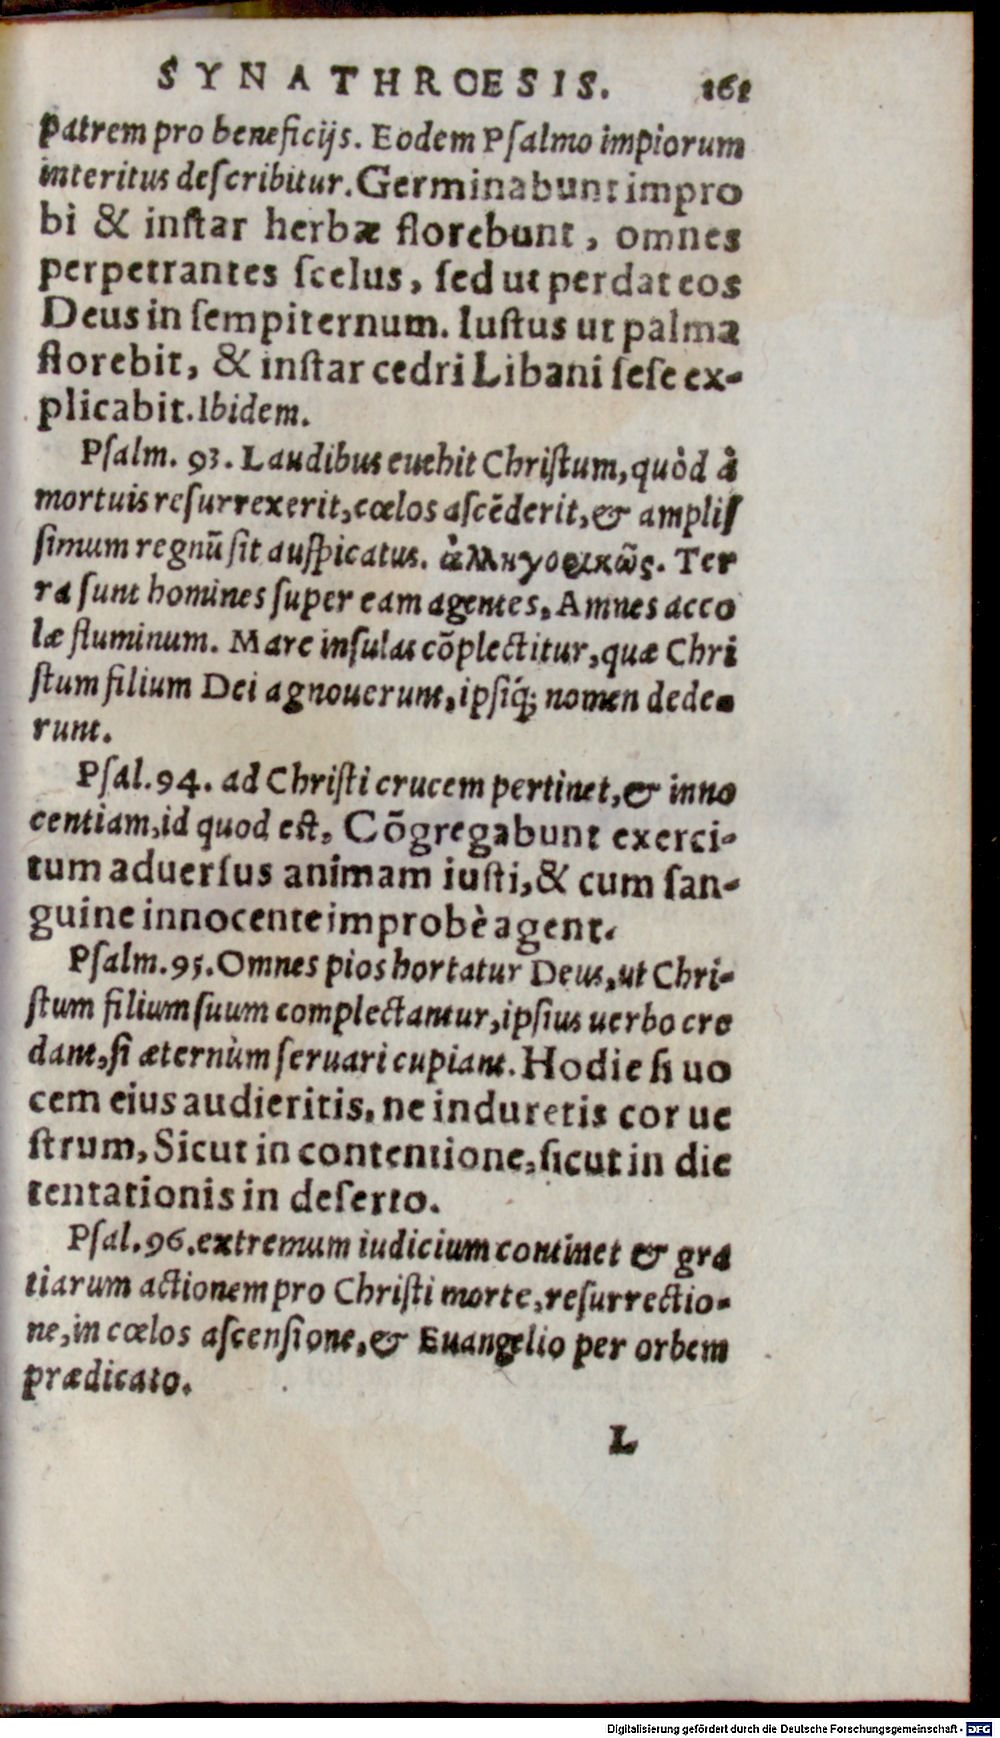 SYNATHROESIS. 161
patrem pro beneficijs. Eodem Psalmo impiorum
interitus describitur. Germinabunt impro
bi & instar herbæ florebunt, omnes
perpetrantes scelus, sed ut perdat eos
Deus in sempiternum. Iustus ut palma
florebit, & instar cedri Libani sese ex-
plicabit. Ibidem.
Psalm. 93. Laudibus euehit Christum, quòd à
mortuis resurrexerit, cœlos ascēderit, & amplis
simum regnū sit auspicatus. ἀλληγορικῶς. Ter
ra sunt homines super eam agentes, Amnes acco
læ fluminum. Mare insulas cōplectitur, quæ Chri
stum filium Dei agnouerunt, ipsiq́; nomen dede-
runt.
Psal. 94. ad Christi crucem pertinet, & inno
centiam, id quod est, Cōgregabunt exerci-
tum aduersus animam iusti, & cum san-
guine innocente improbè agent.
Psalm. 95. Omnes pios hortatur Deus, ut Chri-
stum filium suum complectantur, ipsius uerbo cre
dant, si æternùm seruari cupiant. Hodie si uo
cem eius audieritis, ne induretis cor ue
strum, Sicut in contentione, sicut in die
tentationis in deserto.
Psal. 96. extremum iudicium continet & gra
tiarum actionem pro Christi morte, resurrectio-
ne, in cœlos ascensione, & Euangelio per orbem
prædicato.
L
Digitalisierung gefördert durch die Deutsche Forschungsgemeinschaft - DFG